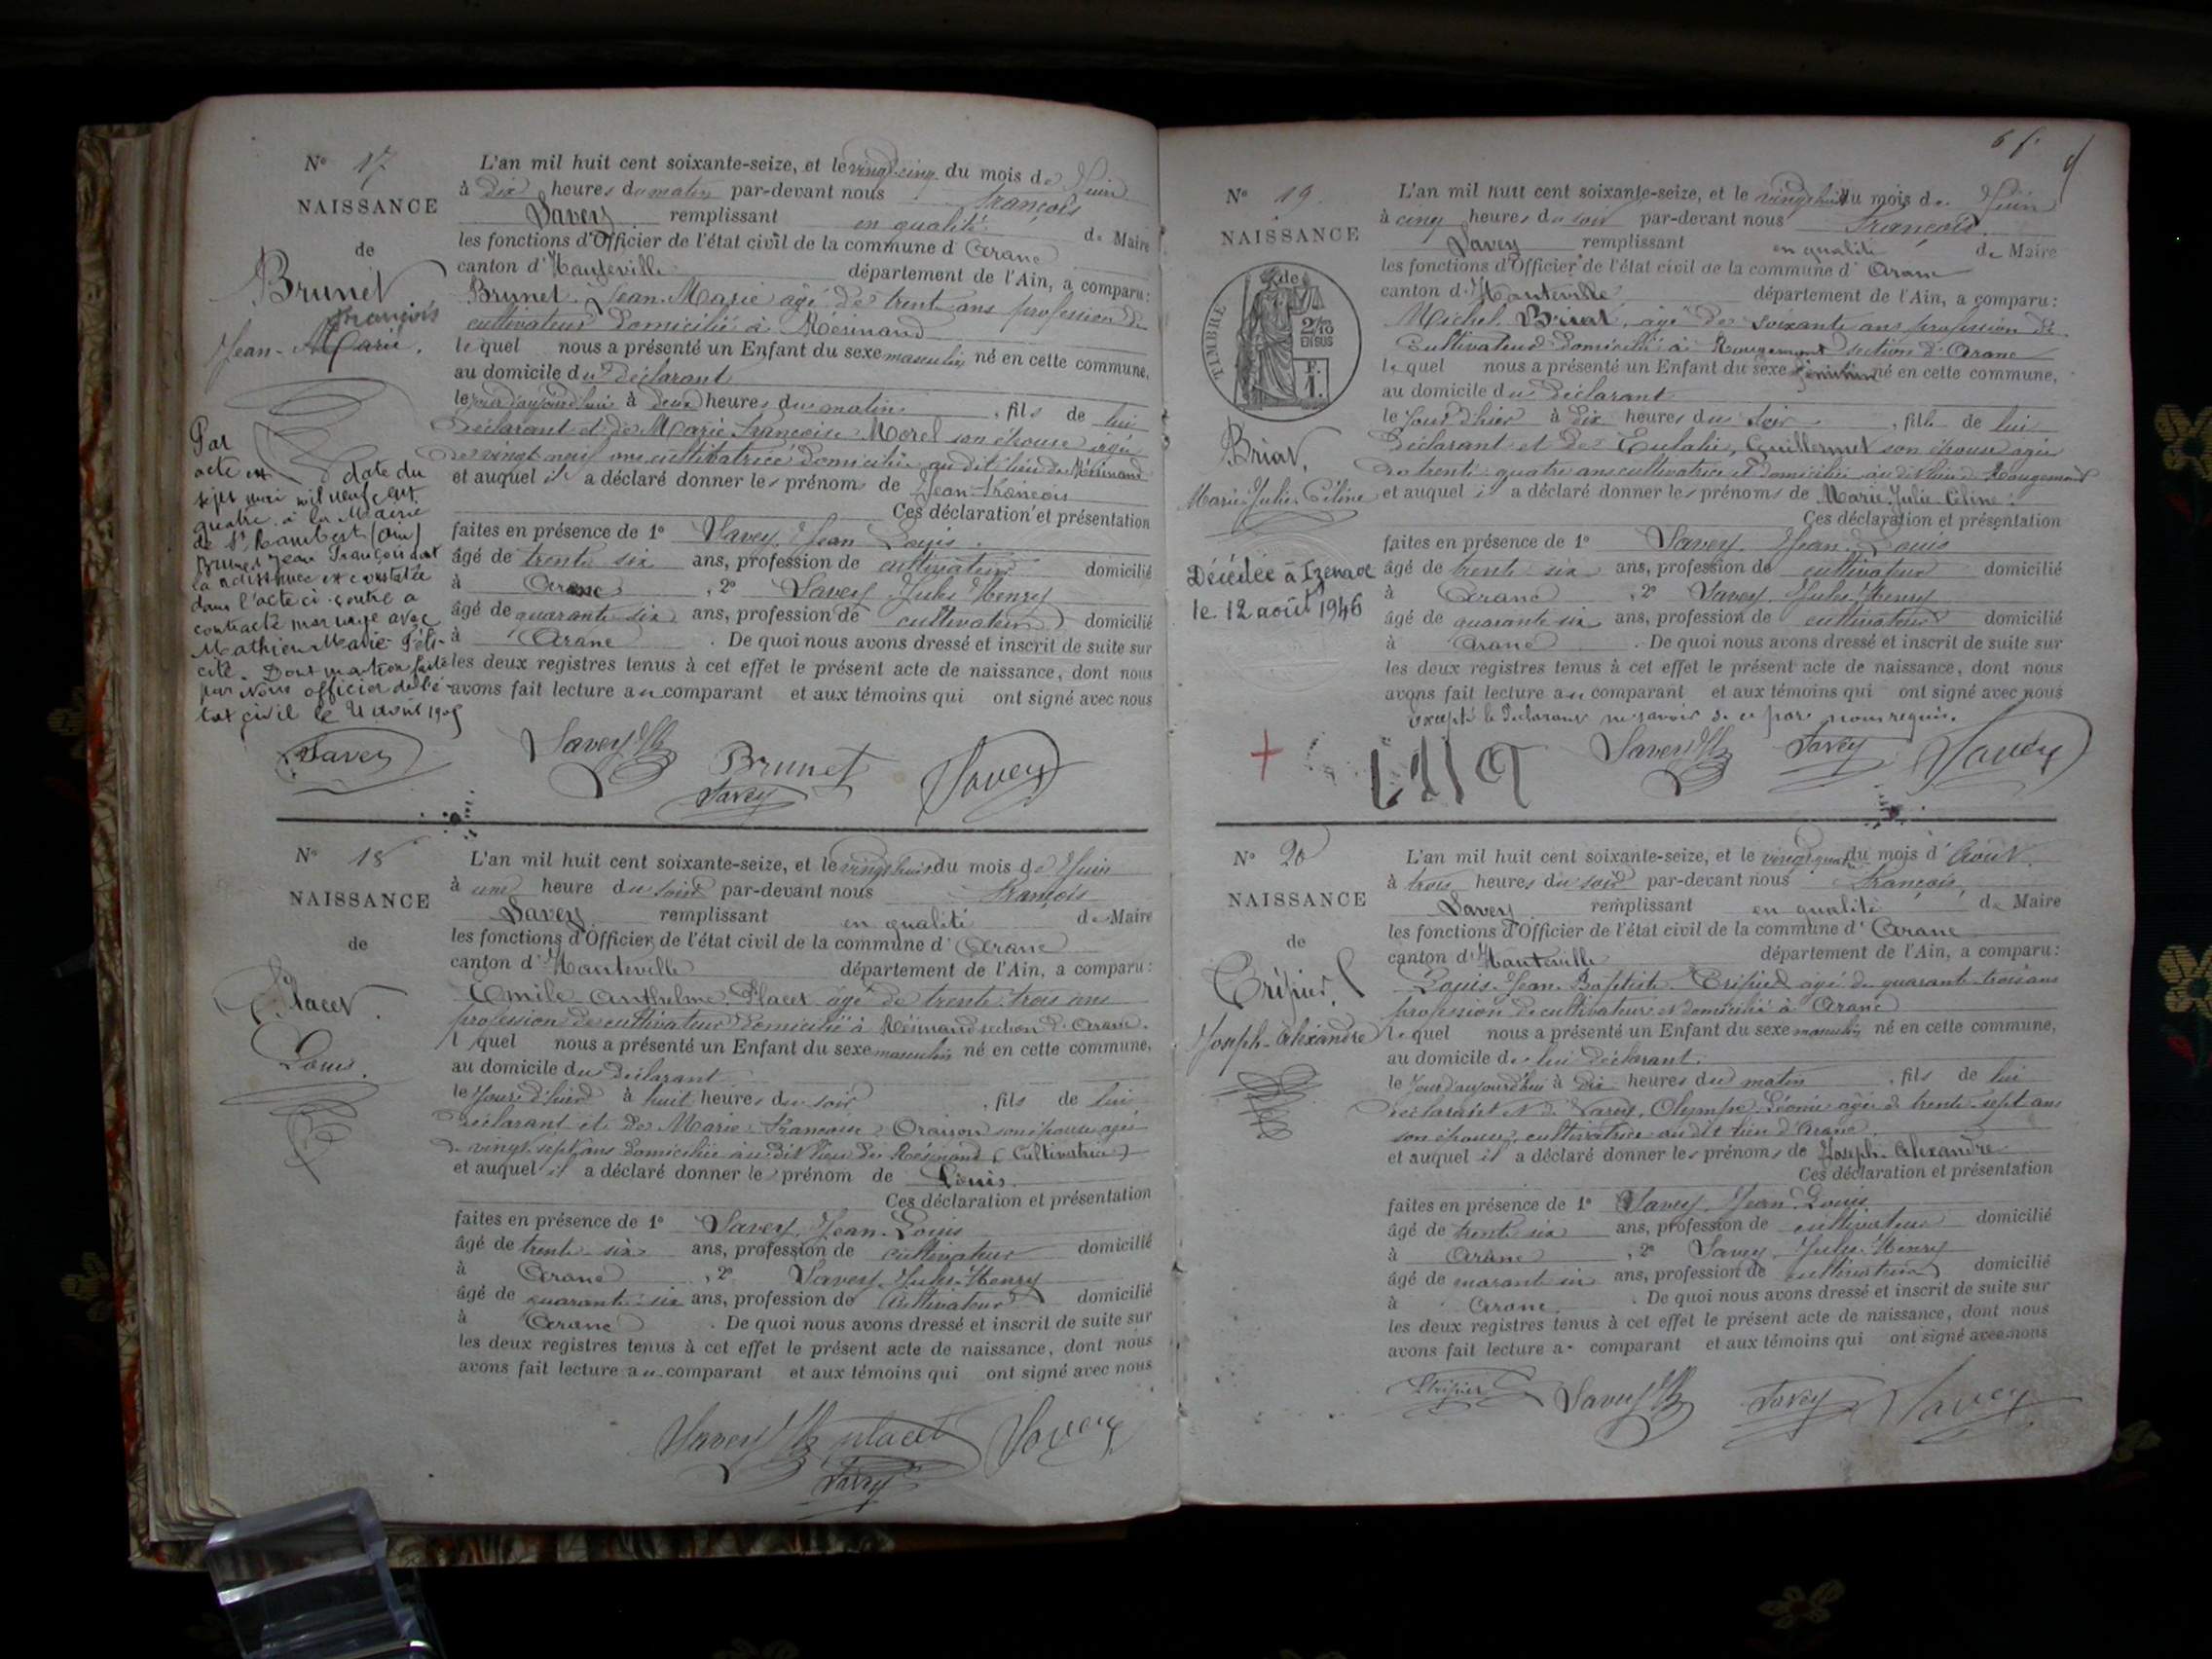 N° 17
NAISSANCE
de
Brunet
François
Jean-Marie.
Par
acte en date du
sept mai mil neuf cent
quatre, à la Mairie
de St Rambert (Ain)
Brunet Jean François dont
la naissance est constatée
dans l'acte ci-contre a
contracté mariage avec
Mathieu Marie Féli-
cité. Dont mention faite
par Nous officier de l'é-
tat civil le 21 Avril 1905
Savey
L'an mil huit cent soixante-seize, et le vingt-cinq du mois de Juin
à dix heures du matin par-devant nous François
Savey remplissant en qualité de Maire
les fonctions d'Officier de l'état civil de la commune d'Aranc
canton d'Hauteville département de l'Ain, a comparu:
Brunet Jean-Marie âgé de trente ans profession de
cultivateur domicilié à Résinand
lequel nous a présenté un Enfant du sexe masculin né en cette commune,
au domicile du déclarant
le jour d'aujourd'hui à deux heures du matin, fils de lui
déclarant et de Marie Françoise Morel son épouse âgée
de vingt neuf ans cultivatrice domiciliée au dit lieu de Résinand
et auquel il a déclaré donner les prénoms de Jean-François
Ces déclaration et présentation
faites en présence de 1° Savey, Jean Louis.
âgé de trente six ans, profession de cultivateur domicilié
à Aranc, 2° Savey Jules Henry
âgé de quarante six ans, profession de cultivateur domicilié
à Aranc. De quoi nous avons dressé et inscrit de suite sur
les deux registres tenus à cet effet le présent acte de naissance, dont nous
avons fait lecture au comparant et aux témoins qui ont signé avec nous
Savey JH Brunet Savey
Savey
N° 18
NAISSANCE
de
Placet.
Louis.
L'an mil huit cent soixante-seize, et le vingt huit du mois de Juin
à une heure du soir par-devant nous François
Savey remplissant en qualité de Maire
les fonctions d'Officier de l'état civil de la commune d'Aranc
canton d'Hauteville département de l'Ain, a comparu:
Emile Anthelme Placet âgé de trente-trois ans
profession de cultivateur domicilié à Résinand section d'Aranc.
lequel nous a présenté un Enfant du sexe masculin né en cette commune,
au domicile du déclarant
le jour d'hier à huit heures du soir, fils de lui
déclarant et de Marie Françoise Oraison son épouse agée
de vingt-sept ans domiciliée au dit lieu de Résinand (Cultivatrice)
et auquel il a déclaré donner le prénom de Louis.
Ces déclaration et présentation
faites en présence de 1° Savey, Jean-Louis
âgé de trente-six ans, profession de cultivateur domicilié
à Aranc, 2° Savey Jules-Henry
âgé de quarante-six ans, profession de Cultivateur domicilié
à Aranc. De quoi nous avons dressé et inscrit de suite sur
les deux registres tenus à cet effet le présent acte de naissance, dont nous
avons fait lecture au comparant et aux témoins qui ont signé avec nous
Savey JH placet Savey
Savey
N° 19
NAISSANCE
de
TIMBRE
2/10
EN SUS
F.
1.
Briat,
Marie-Julie-Céline
Décédée à Izenave
le 12 août 1946
L'an mil huit cent soixante-seize, et le vingt huit du mois de Juin
à cinq heures du soir par-devant nous François
Savey remplissant en qualité de Maire
les fonctions d'Officier de l'état civil de la commune d'Aranc
canton d'Hauteville département de l'Ain, a comparu:
Michel Briat, âgé de soixante ans profession de
Cultivateur domicilié à Rougemont section d'Aranc
lequel nous a présenté un Enfant du sexe féminin né en cette commune,
au domicile du déclarant
le jour d'hier à dix heures du soir, fille de lui
déclarant et de Eulalie, Guillermet son épouse agée
de trente-quatre ans cultivatrice et domiciliée au dit lieu de Rougemont
et auquel il a déclaré donner les prénoms de Marie Julie-Céline.
Ces déclaration et présentation
faites en présence de 1° Savey, Jean-Louis
âgé de trente six ans, profession de cultivateur domicilié
à Aranc, 2° Savey Jules Henry
âgé de quarante six ans, profession de cultivateur domicilié
à Aranc. De quoi nous avons dressé et inscrit de suite sur
les deux registres tenus à cet effet le présent acte de naissance, dont nous
avons fait lecture au comparant et aux témoins qui ont signé avec nous
excepté le déclarant ne savoir de ce par nous requis.
Savey JH Savey Savey
N° 20
NAISSANCE
de
Tripier
Joseph-Alexandre
L'an mil huit cent soixante-seize, et le vingt-quatre du mois d'Août.
à trois heures du soir par-devant nous François,
Savey remplissant en qualité de Maire
les fonctions d'Officier de l'état civil de la commune d'Aranc
canton d'Hauteville département de l'Ain, a comparu:
Louis-Jean-Baptiste Tripier âgé de quarante-trois ans
profession de cultivateur et domicilié à Aranc
lequel nous a présenté un Enfant du sexe masculin né en cette commune,
au domicile de lui déclarant.
le jour d'aujourd'hui à dix heures du matin, fils de lui
déclarant et de Savey, Olympe Léonie agée de trente-sept ans
son épouse, cultivatrice au dit lieu d'Aranc.
et auquel il a déclaré donner les prénoms de Joseph-Alexandre
Ces déclaration et présentation
faites en présence de 1° Savey, Jean-Louis
âgé de trente six ans, profession de cultivateur domicilié
à Aranc, 2° Savey, Jules-Henry
âgé de quarante six ans, profession de cultivateur domicilié
à Aranc. De quoi nous avons dressé et inscrit de suite sur
les deux registres tenus à cet effet le présent acte de naissance, dont nous
avons fait lecture a comparant et aux témoins qui ont signé avec nous
Tripier Savey JH Savey Savey